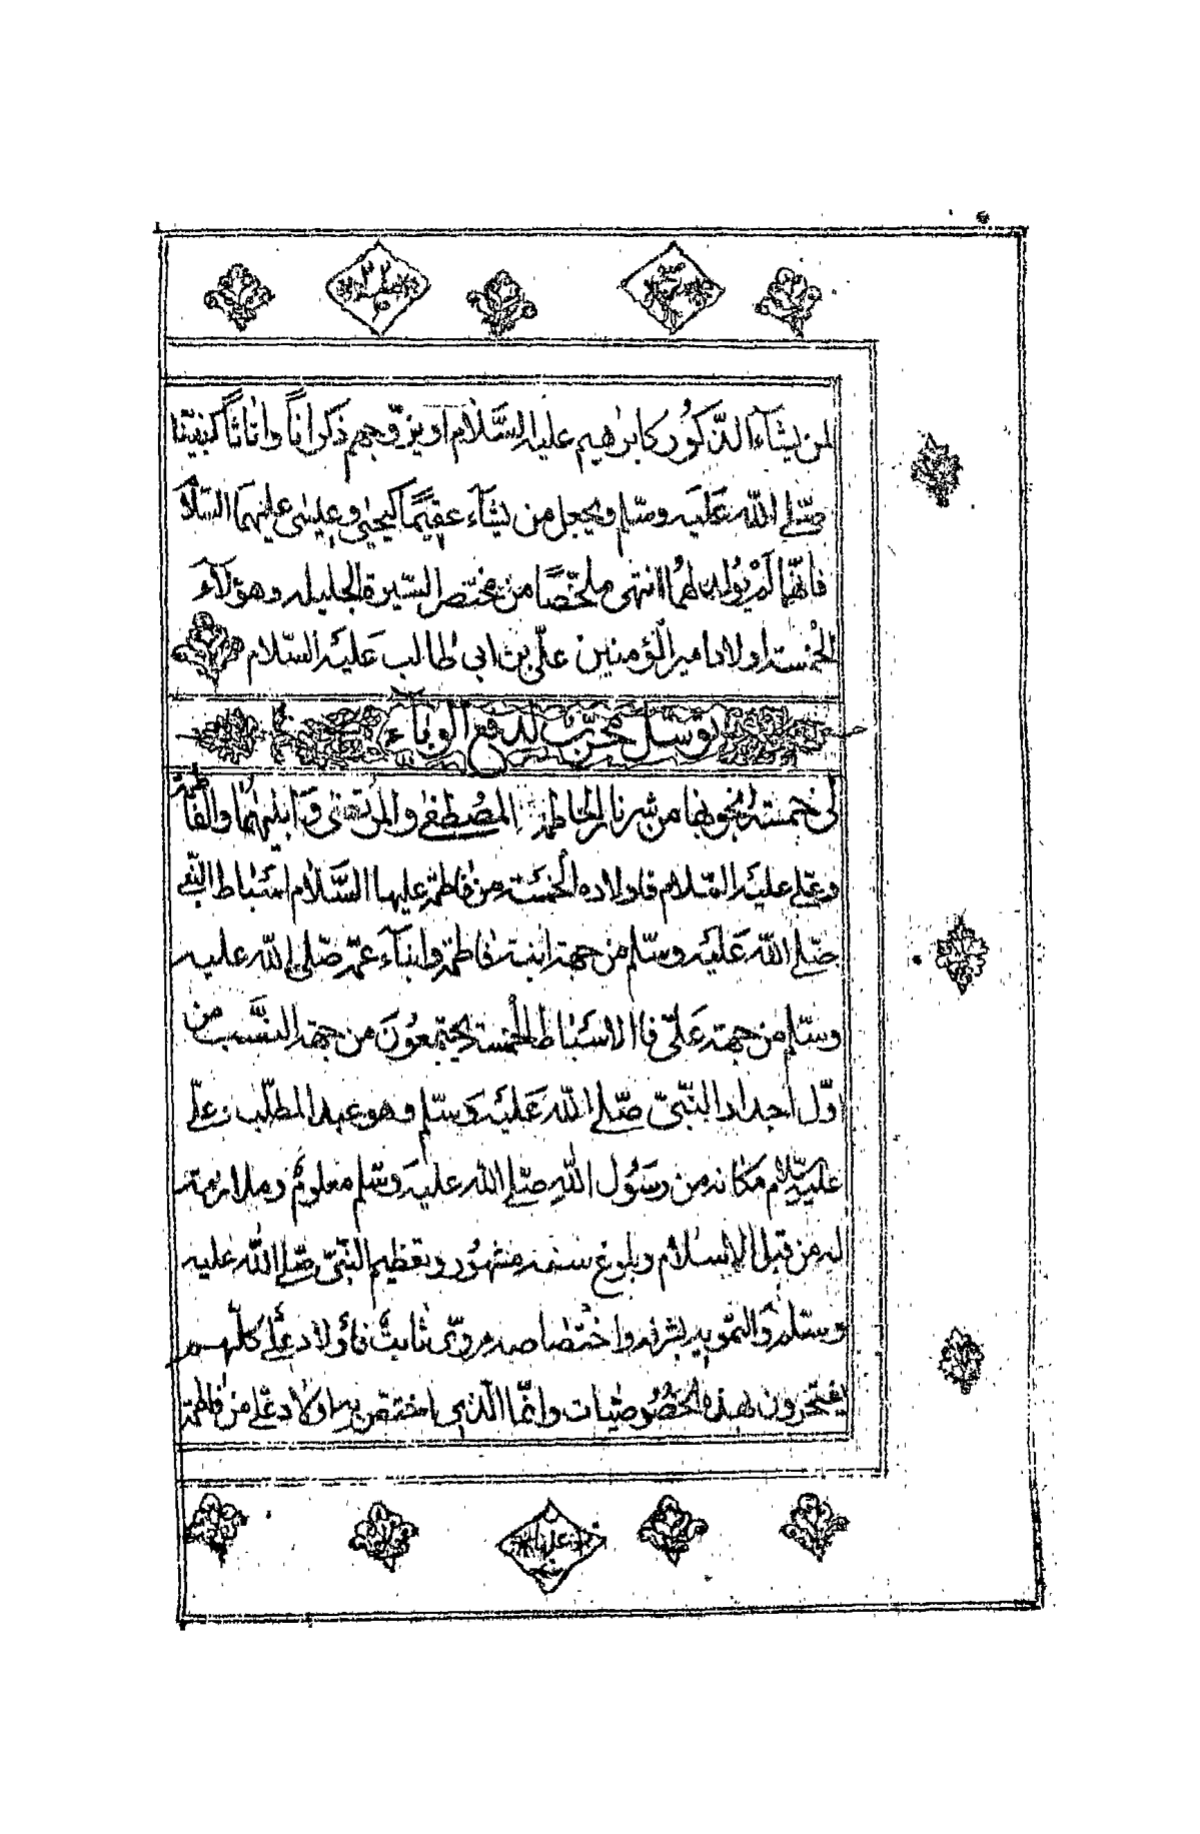 لمن يشآء الذّكور كابرٰهيم عليه السّلام او يزوّجهم ذكرانًا واناثًا كنبيّنا
صلّى اللّه عَليَه وسلّم ويجعل من يشآء عقيمًا كيحيٰى وعيسٰى عليهما السّلام
فانّهما لَمْ يُولد لهُما انتهى ملخّصًا من مختصر السّيرة الجليله وهؤلآء
الخمسة اولاد امير المؤمنين علىّ بن ابى طالب عَليَه السّلام
توسّل مجرّب لدفع الوبآء
لى خمسة انجو بها من شر نار الحاطمة المُصطفٰى والمرتضٰى وَابنيهمُا والفاطمة
وعلى عليَه السّلام فاولاده الخمسَة من فاطمة عليها السَّلام اسَباط النّبى
صلّى اللّه عَليَه وسلّم من جهة ابنته فاطمة وابنآء عمّه صلّى اللّه عليه
وسلّم من جهة عَلىّ فاالاسَباط الخمسة يجتمعُونَ من جهة النسَّب من
اوّل اجداد النّبىّ صلّى اللّه عَليَه وَسلّم وهو عبد المطّلب وعلى
عليه السّلام مكانه من رسَوُل اللّه صلّى اللّه عليَه وسلّم معلومٌ وملازمته
له من قبل الاسلام وبلوغ سنه مشهُور وتعظيم النّبىّ صلّى اللّه عليه
وسلّم والتنويه بشرفه واختصاصه مروىّ ثابتٌ فأولاد علىّ كلّهم
يفتخرون بهذه الخصُوصيّات وانّما الّذى اختصّ به اولاد علىّ من فاطمة